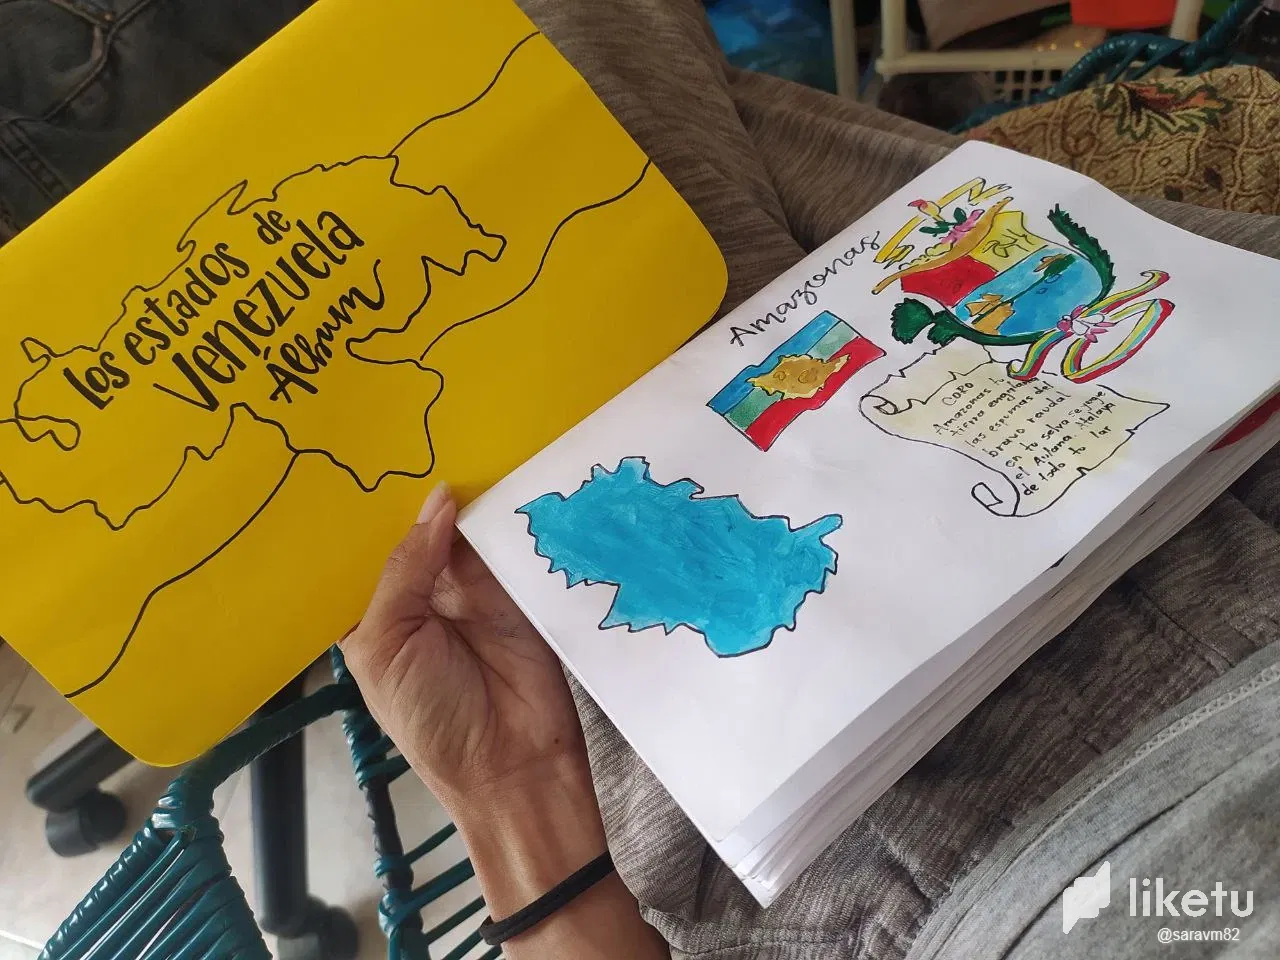 Los estados de
Venezuela
Álbum
Amazonas
CORO
Amazonas tu
tierra engalana
las espumas del
bravo raudal
en tu selva se yergue
el Autana Atalaya
de todo tu lar
liketu
@saravm82